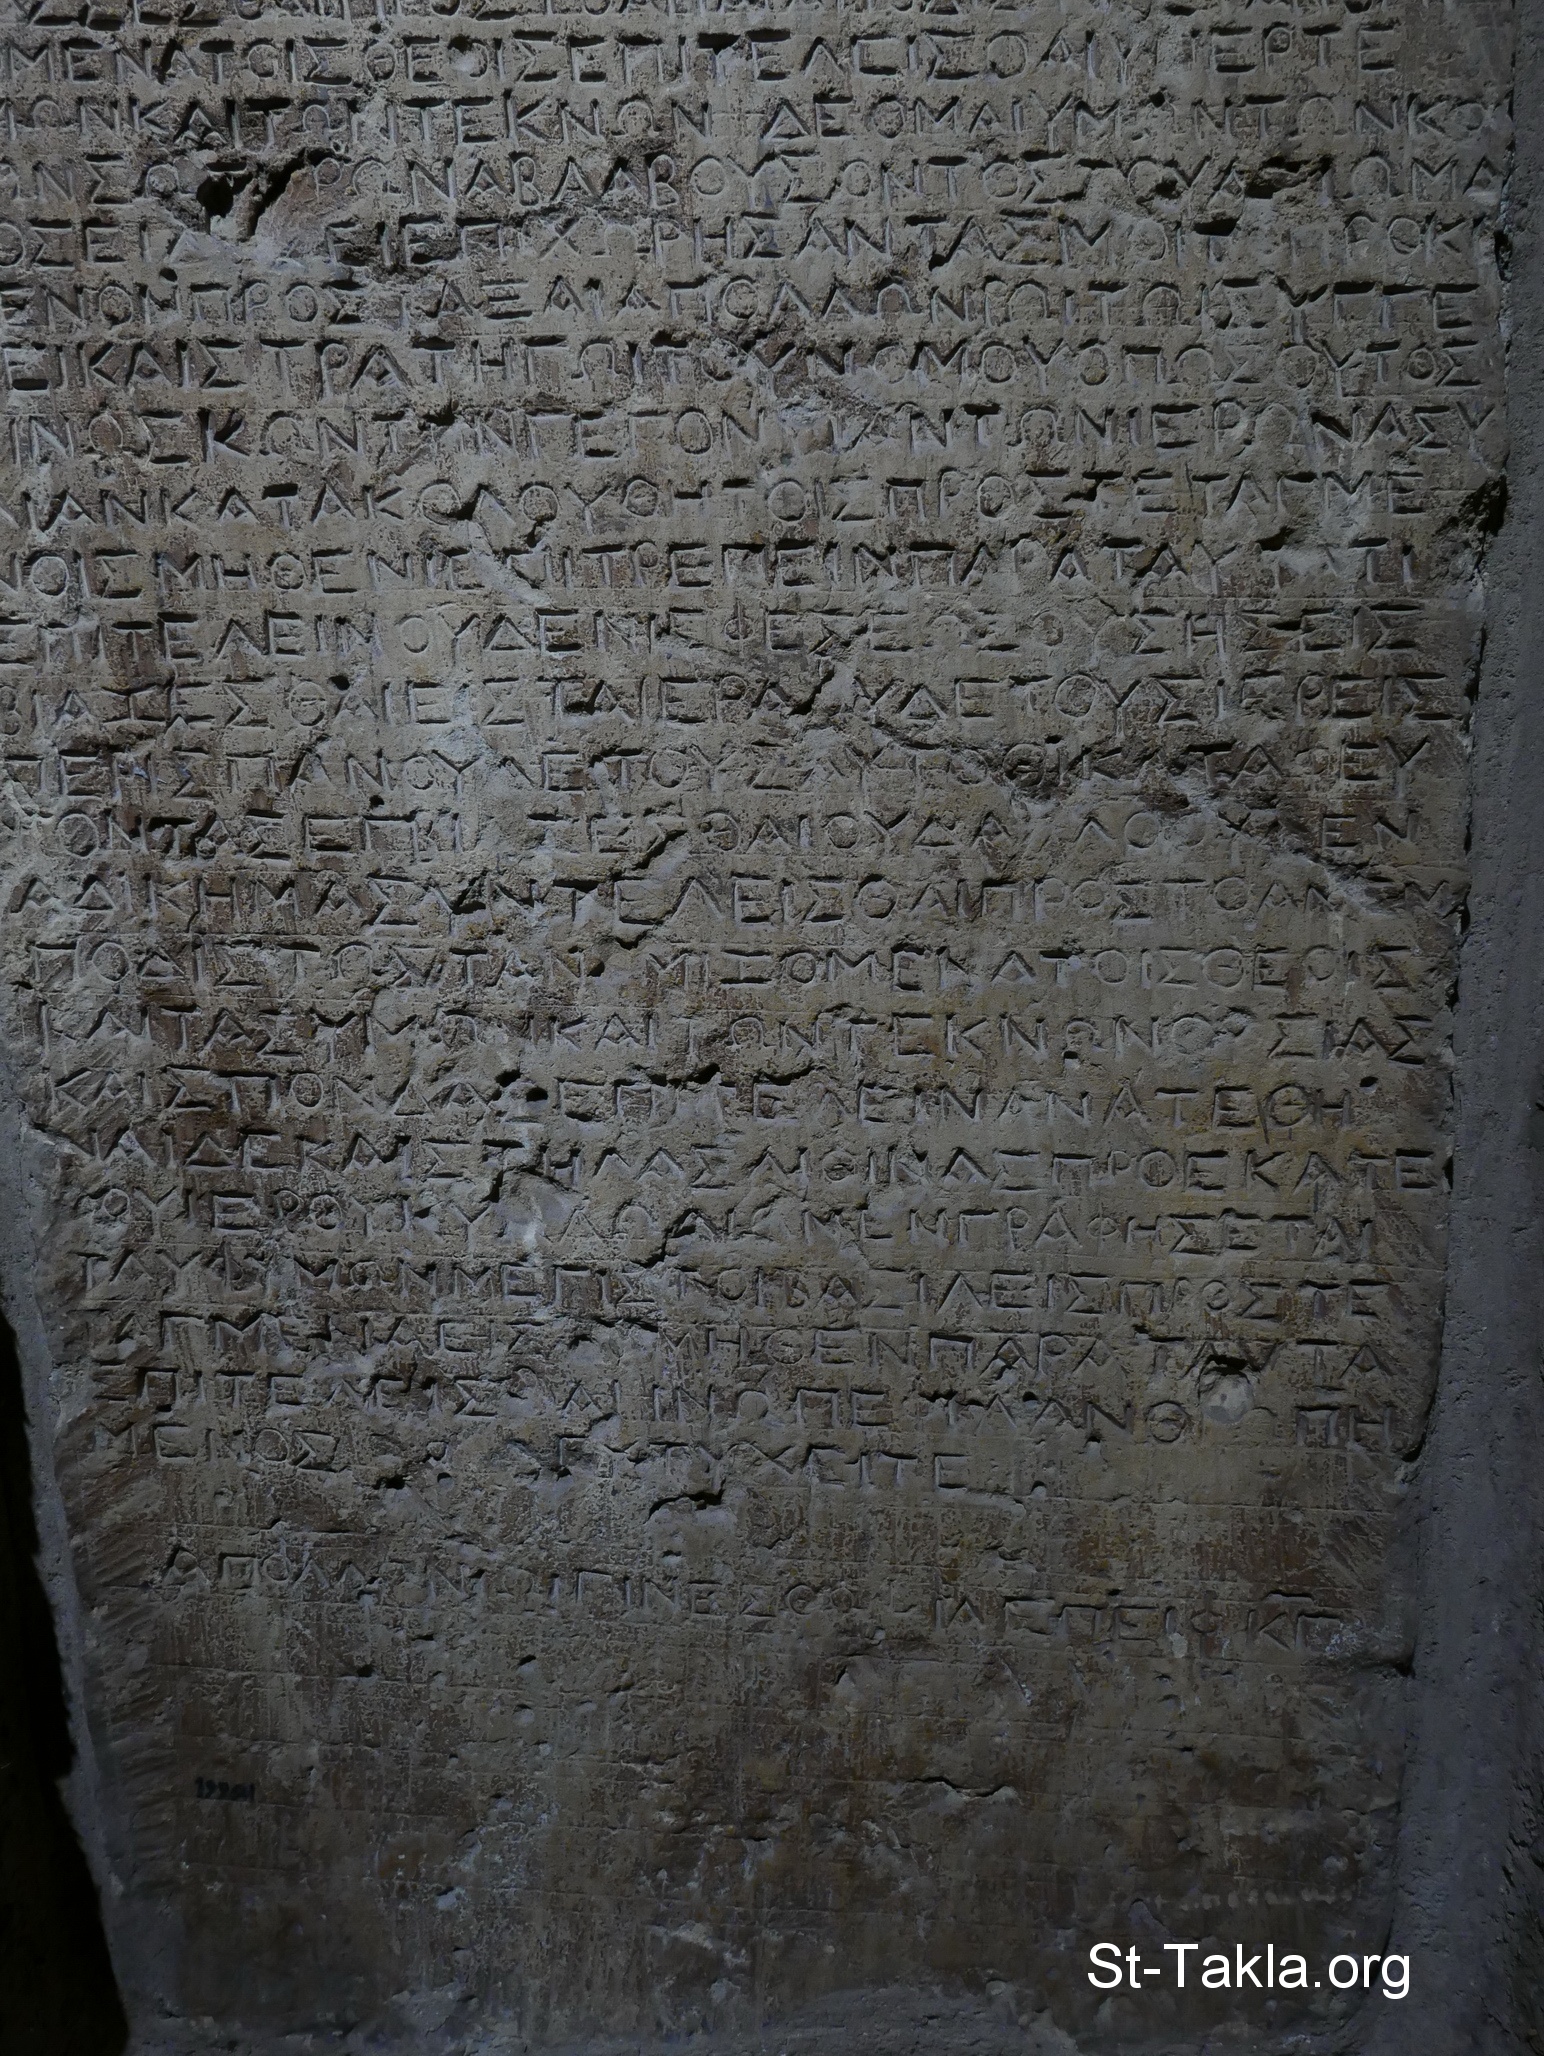 ΜΕΝΑ ΤΟΙΣ ΘΕΟΙΣ ΕΠΙΤΕΛΕΙΣΘΑΙ ΥΠΕΡ ΤΕ
ΚΑΙ ΤΩΝ ΤΕΚΝΩΝ ΔΕΟΜΑΙ ΥΜΩΝ ΤΩΝ ΚΟ
ΩΝ ΣΩΤΗΡΩΝ Α ΒΛΑΒΟΥΣ ΟΝΤΟΣ ΤΟΥ
ΕΠΙΧΩΡΗΣΑΝΤΑΣ ΜΟΙ ΤΟ ΠΡΟΚΙ
ΕΝΟΝ ΠΡΟΣΤΑΞΑΙ ΑΠΟΛΛΩΝΙΩΙ ΤΩΙ ΣΥΓΓΕ
ΕΙ ΚΑΙ ΣΤΡΑΤΗΓΩΙ ΤΟΥ ΝΟΜΟΥ ΟΠΩΣ ΟΥΤΟΣ
ΙΝΩΣΚΩΝ ΤΗΝ ΓΕΓΟΝΥΙΑΝ ΤΩΝ ΙΕΡΩΝ ΑΣΥ
ΛΙΑΝ ΚΑΤΑΚΟΛΟΥΘΗ ΤΟΙΣ ΠΡΟΣΤΕΤΑΓΜΕ
ΝΟΙΣ ΜΗΘΕΝΙ ΕΠΙΤΡΕΠΕΙΝ ΠΑΡΑ ΤΑΥΤΑ ΤΙ
ΕΠΙΤΕΛΕΙΝ ΟΥΔΕΝ ΘΕΣΕΩΣ ΟΥΣΗΣ ΕΙΣ
ΒΙΑΖΕΣΘΑΙ ΕΙΣ ΤΑ ΙΕΡΑ ΟΥΔΕ ΤΟΥΣ ΙΕΡΕΙΣ
ΠΕΡΙΣΠΑΝ ΟΥΔΕ ΤΟΥΣ ΑΥΤΟΘΙ ΚΑΤΑΦΕΥ
ΓΟΝΤΑΣ ΕΓΒΙΑΖΕΣΘΑΙ ΟΥΔ ΑΛΛΟ ΟΥΘΕΝ
ΑΔΙΚΗΜΑ ΣΥΝΤΕΛΕΙΣΘΑΙ ΠΡΟΣ ΤΟ ΑΝΕΜ
ΠΟΔΙΣΤΩΣ ΤΑ ΝΟΜΙΖΟΜΕΝΑ ΤΟΙΣ ΘΕΟΙΣ
ΚΑΙ ΤΑΣ ΥΜΩΝ ΚΑΙ ΤΩΝ ΤΕΚΝΩΝ ΘΥΣΙΑΣ
ΚΑΙ ΣΠΟΝΔΑΣ ΕΠΙΤΕΛΕΙΝ ΑΝΑΤΕΘΗ
ΝΑΙ ΔΕ ΚΑΙ ΣΤΗΛΑΣ ΛΙΘΙΝΑΣ ΠΡΟ ΕΚΑΤΕ
ΡΟΥ ΙΕΡΟΥ ΚΥΚΛΩ ΑΙΣ ΜΕΝ ΓΡΑΦΗΣΕΤΑΙ
ΤΑ ΥΦ ΥΜΩΝ ΜΕΓΙΣΤΟΙ ΒΑΣΙΛΕΙΣ ΠΡΟΣΤΕ
ΤΑΓΜΕΝΑ ΕΙΣ ΤΟ ΜΗΘΕΝ ΠΑΡΑ ΤΑΥΤΑ
ΕΠΙΤΕΛΕΙΣΘΑΙ ΙΝ Ω ΠΕΦΙΛΑΝΘΡΩΠΗ
ΜΕΝΟΣ ΔΙΕΥΤΥΧΕΙΤΕ
ΑΠΟΛΛΩΝΙΩΙ ΓΙΝΕΣΘΩ
St-Takla.org